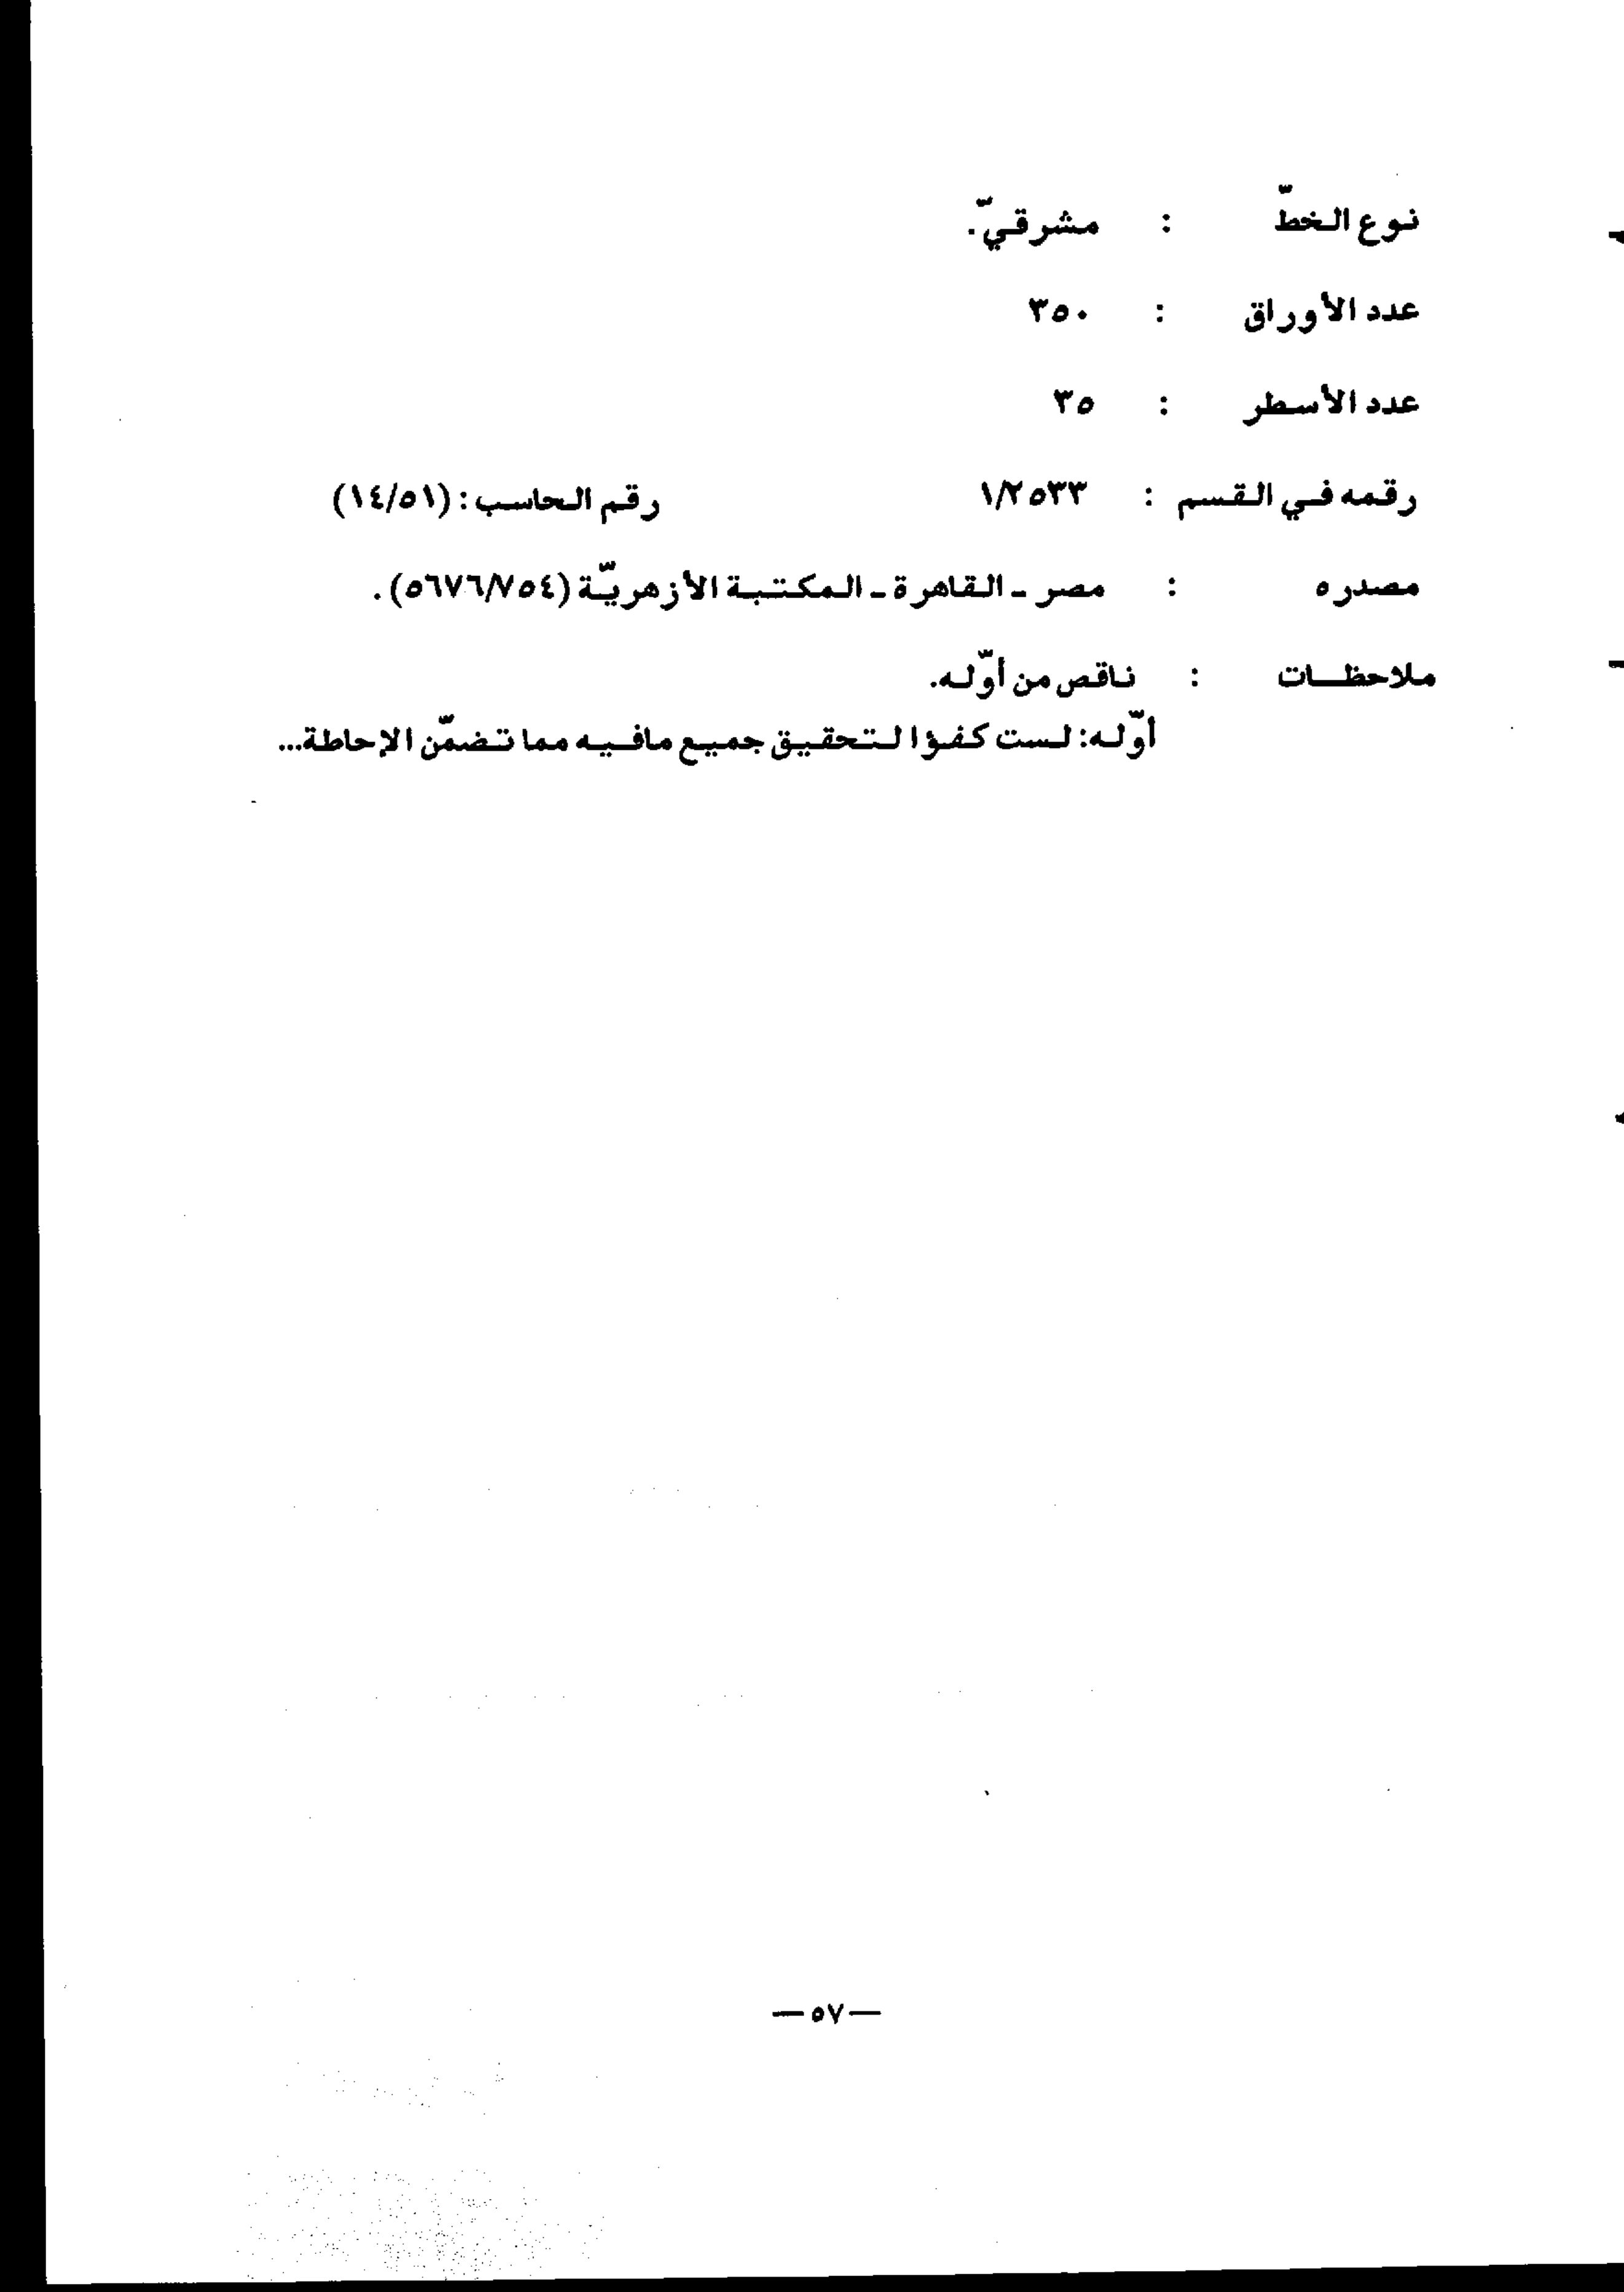 نوع الخطّ : مشرقيّ.
عدد الأوراق : ٣٥٠
عدد الأسطر : ٣٥
رقمه في القسم : ١/٢٥٣٣ رقم الحاسب : (١٤/٥١)
مصدره : مصر ـ القاهرة ـ المكتبة الأزهريّة (٥٦٧٦/٧٥٤).
ملاحظات : ناقص من أوّله.
أوّله: لست كفؤا لتحقيق جميع مافيه مما تضمّن الإحاطة...
— ٥٧ —